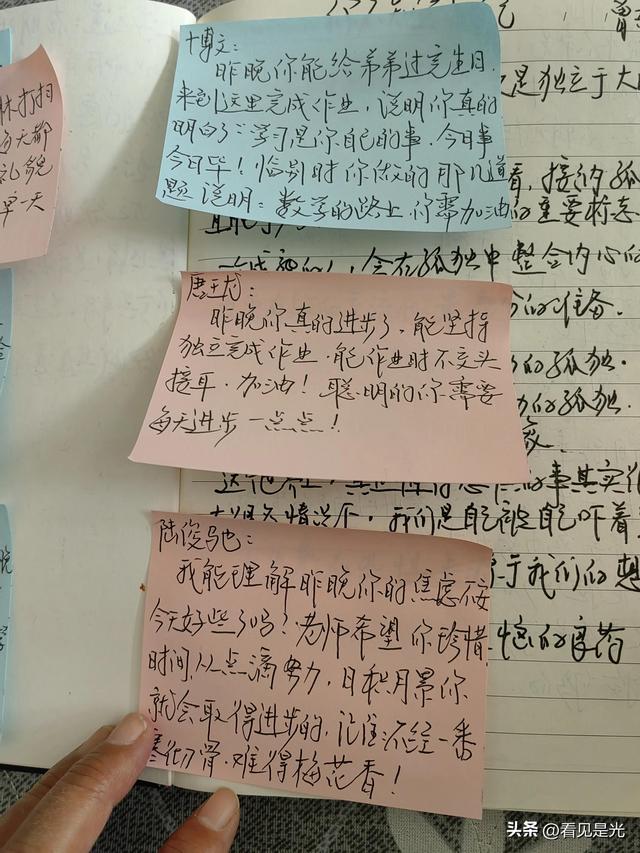 博文：
昨晚你能给弟弟过完生日
来到这里完成作业，说明你真的
明白了：学习是你自己的事，今日事
今日毕！临别时你做的那几道
题说明：数学的路上你需加油
唐玉龙：
昨晚你真的进步了，能坚持
独立完成作业，能作业时不交头
接耳，加油！聪明的你需要
每天进步一点点！
陆俊驰：
我能理解昨晚你的焦虑不安
今天好些了吗？老师希望你珍惜
时间，从点滴努力，日积月累你
就会取得进步的，记住不经一番
寒彻骨，难得梅花香！
林打扫
每天都
礼貌
早一天
是独立于大
看，接纳孤
的重要标志
会在孤独中整合内心的
的准备．
的孤独．
的孤独．
的事其实很
情况下，我们是自己被自己吓着
于我们的想
的良药
头条 @看见是光